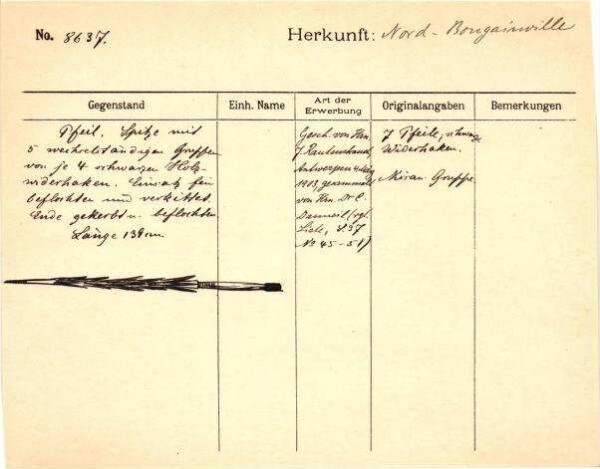 No. 8637. Herkunft: Nord-Bougainville
Gegenstand Einh. Name Art der Erwerbung Originalangaben Bemerkungen
Pfeil. Spitze mit
5 wechselständigen Gruppen
von je 4 schwarzen Holz-
widerhaken. Einsatz fein
beflochten und verkittet.
Ende gekerbt u. beflochten
Länge 139 cm.
Gesch. von Hrn.
J. Rautenstrauch,
Antwerpen
1903, gesammelt
von Hrn. Dr. E.
Danneil (vgl.
Liste, S. 37
No 45-51)
7 Pfeile, schwarze
Widerhaken.
Gruppe